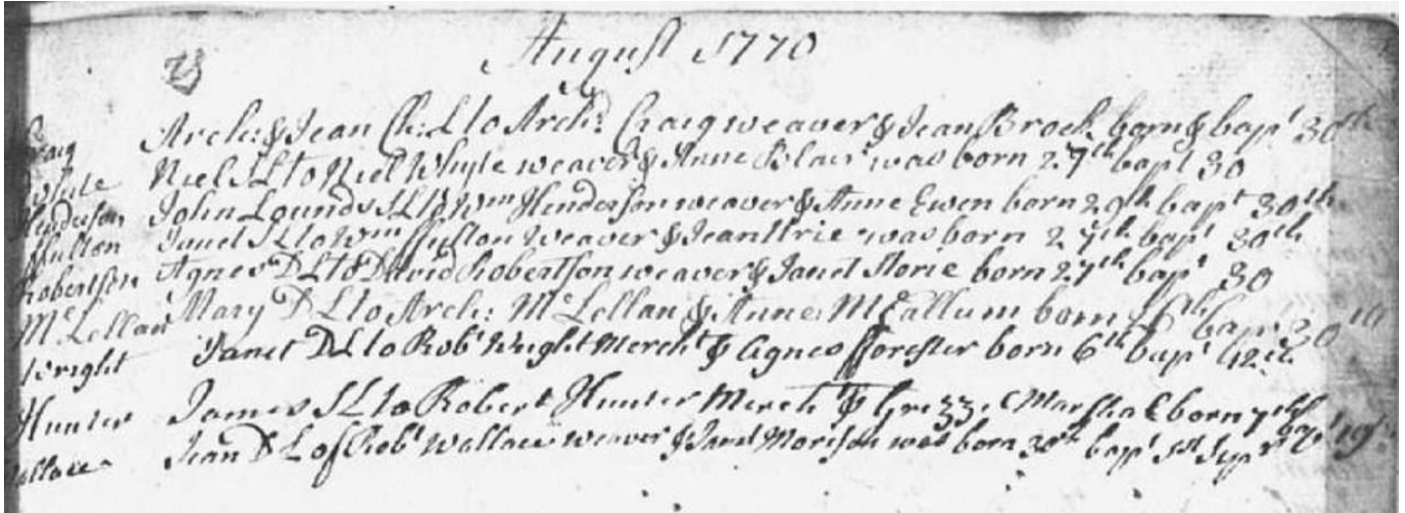 August 1770
Craig Arch: & Jean Ch: L to Archd. Craig weaver & Jean Brock born & bapt 30th
Whyte Niel SL to Niel Whyte weaver & Anne Blair was born 27th bapt 30
Henderson John Lounds SL to Wm Henderson weaver & Anne Ewen born 29th bapt 30th
ffulton Janet SL to Wm ffulton Weaver & Jean Urie was born 27th bapt 30th
Robertson Agnes DL to David Robertson weaver & Janet Storie born 27th bapt 30
McLellan Mary DL to Arch: McLellan & Anne McCallum born bapt
Wright Janet DL to Robt Wright Mercht & Agnes fforester born 6th bapt 12th
Hunter James SL to Robert Hunter Mercht & Grizzie Marshal born 7th bapt 19th
Wallace Jean DL of Robt Wallace weaver & Janet Morison was born 30th bapt 1st Sepr